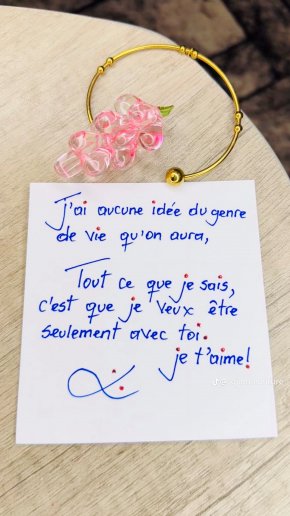 J'ai aucune idée du genre
de vie qu'on aura,
Tout ce que je sais,
c'est que je veux être
seulement avec toi.
je t'aime!